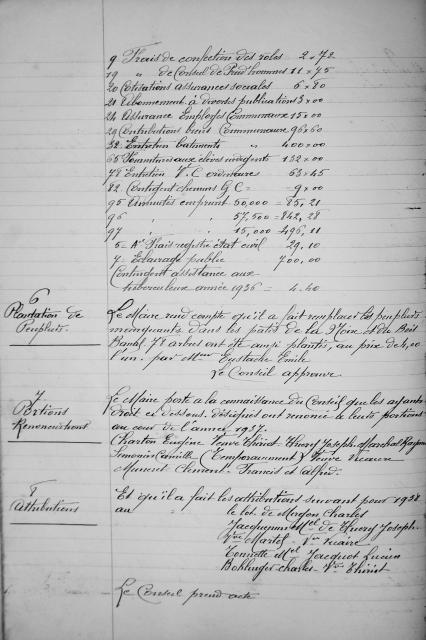 9 Frais de confection des roles 2 = 72
19 " de Conseil de Prud'hommes 11 = 75
20 Cotisations assurances sociales 6 = 80
21 Abonnement à diverses publications 3 = 00
24 Assurance Employés Communaux 15 = 00
29 Contributions biens Communaux 96 = 60
32 Entretien batiments " 400 = 00
65 Fournitures aux élèves indigents 132 = 00
78 Entretien V. C ordinaires 63 = 45
82 Contingent chemins G C = 9 = 00
95 Annuités emprunt 50,000 = 85,21
96 " " 57,500 = 842,28
97 " " 15,000 = 496,11
5 = Frais registre état civil 29,10
7 = Eclairage public 700,00
Contingent assistance aux
tuberculeux année 1936 = 4.40
6
Plantation de
Peupliers.
Le Maire rend compte qu'il a fait remplacer les peupliers
manquants dans les patis de la Noix et du Bois
78 arbres ont été ainsi plantés, au prix de 4,00
l'un. par Mr Eustache Emile
Le Conseil approuve
7
Portions
Renonciations
Le Maire porte à la connaissance du Conseil que les ayants
droit ci dessous. Désignés ont renoncé à leurs portions
au cour de l'année 1937.
Charton Eugène Veuve Thiriot. Thiery Joseph. Marchal
Simonin Camille (Temporairement) Veuve Vicaire
Clement. Francis et Alfred.
8
Attributions
Et qu'il a fait les attributions suivant pour 1938
au " le lot de Charles
Jacquemin Mel de Thiery Joseph
Vve Martel - Vve Vicaire
Mel Jacquot Lucien
Bohlinger Charles - Vve Thiriot
Le Conseil prend acte